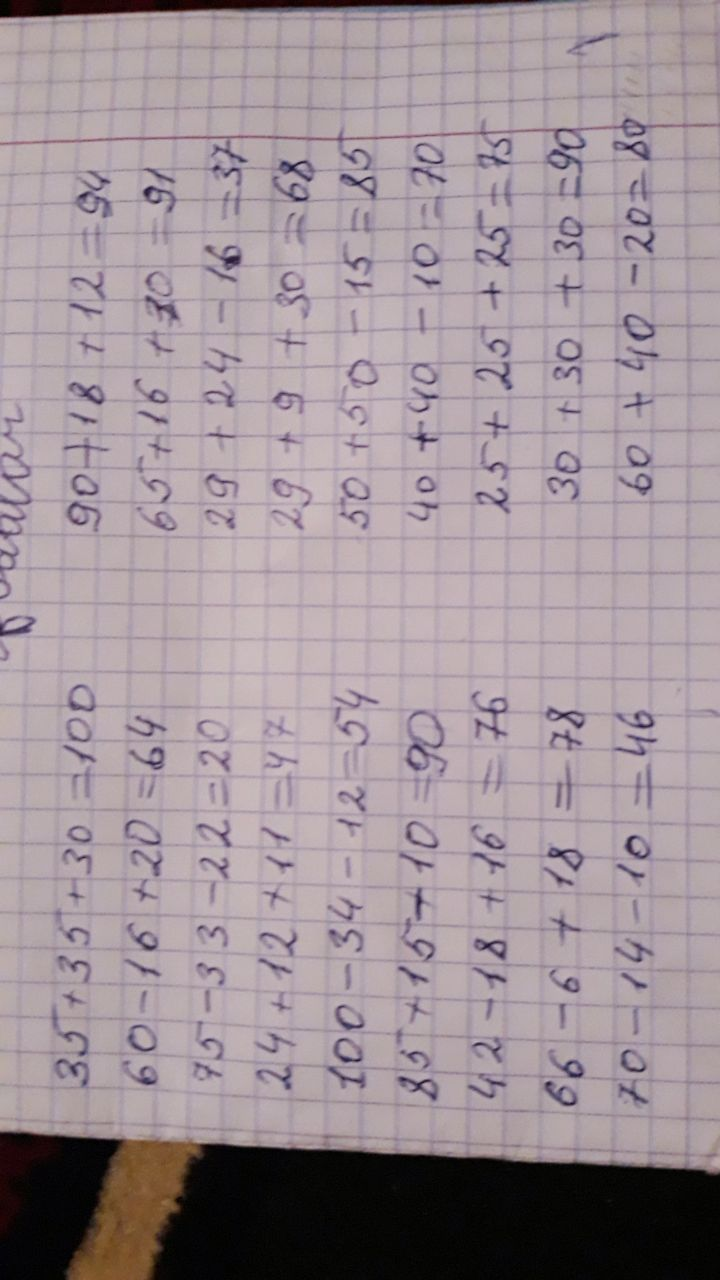 35+35+30=100
60-16+20=64
75-33-22=20
24+12+11=47
100-34-12=54
85+15+10=90
42-18+16=76
66-6+18=78
70-14-10=46
90+18+12=94
65+16+30=91
29+24-16=37
29+9+30=68
50+50-15=85
40+40-10=70
25+25+25=75
30+30+30=90
60+40-20=80